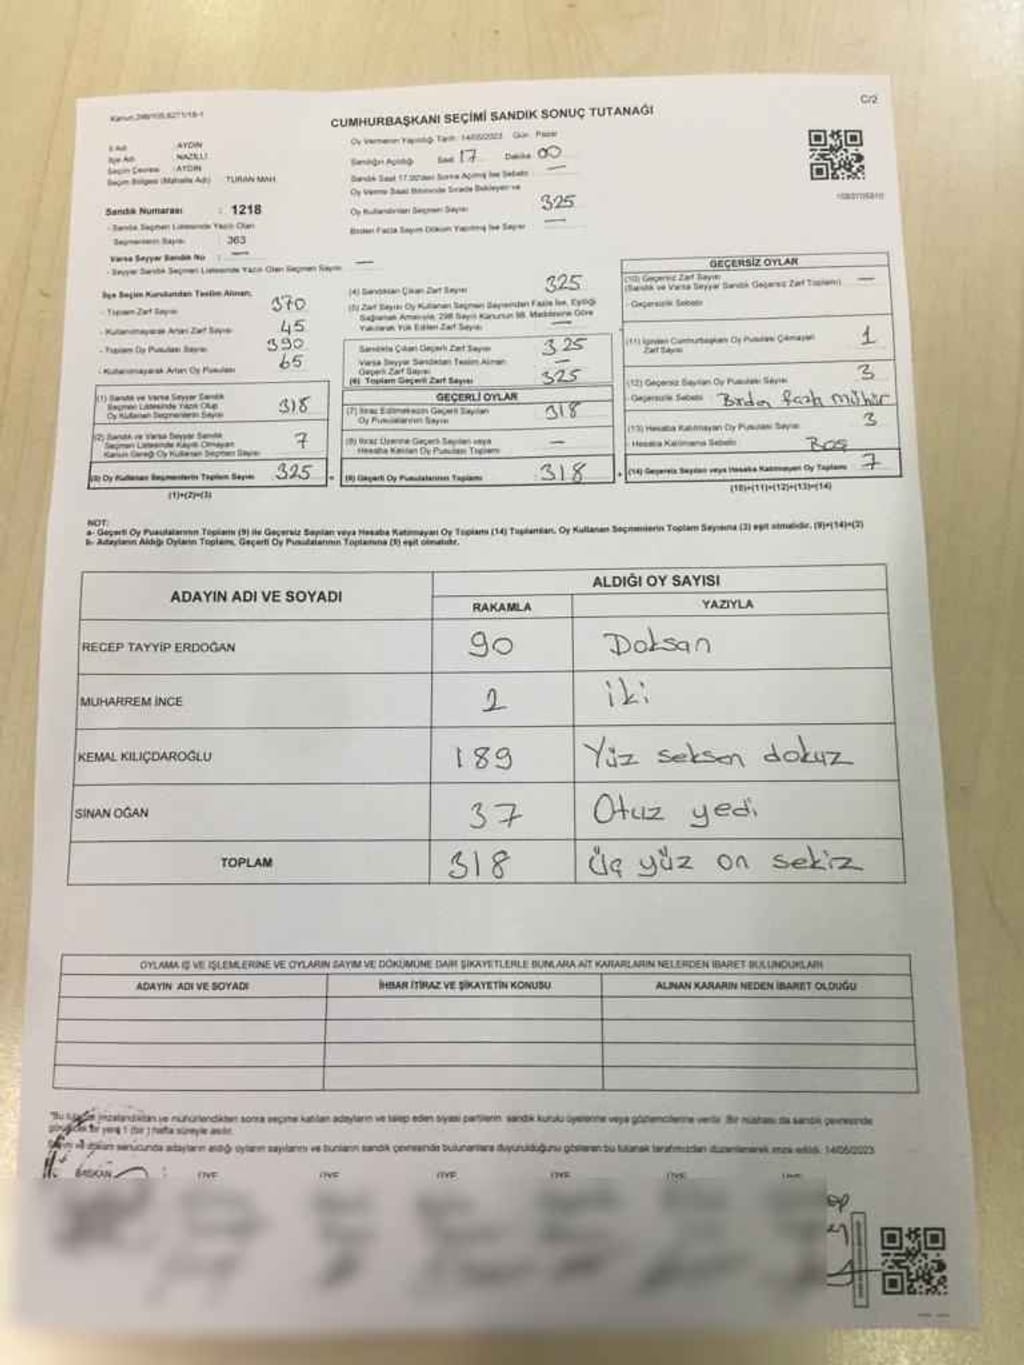 Kanun:298/105,6271/18-1
C/2
CUMHURBAŞKANI SEÇİMİ SANDIK SONUÇ TUTANAĞI
İl Adı : AYDIN
İlçe Adı : NAZİLLİ
Seçim Çevresi : AYDIN
Seçim Bölgesi (Mahalle Adı) : TURAN MAH.
Sandık Numarası : 1218
- Sandık Seçmen Listesinde Yazılı Olan
Seçmenlerin Sayısı : 363
Varsa Seyyar Sandık No : —
- Seyyar Sandık Seçmen Listesinde Yazılı Olan Seçmen Sayısı : —
Oy Vermenin Yapıldığı Tarih: 14/05/2023 Gün: Pazar
Sandığın Açıldığı Saat 17 Dakika 00
Sandık Saat 17.00'den Sonra Açılmış İse Sebebi —
Oy Verme Saati Bitiminde Sırada Bekleyen ve
Oy Kullandırılan Seçmen Sayısı 325
Birden Fazla Sayım Döküm Yapılmış İse Sayısı —
İlçe Seçim Kurulundan Teslim Alınan;
- Toplam Zarf Sayısı 370
- Kullanılmayarak Artan Zarf Sayısı 45
- Toplam Oy Pusulası Sayısı 390
- Kullanılmayarak Artan Oy Pusulası 65
(1) Sandık ve Varsa Seyyar Sandık
Seçmen Listesinde Yazılı Olup
Oy Kullanan Seçmenlerin Sayısı 318
(2) Sandık ve Varsa Seyyar Sandık
Seçmen Listesinde Kayıtlı Olmayan
Kanun Gereği Oy Kullanan Seçmen Sayısı 7
(3) Oy Kullanan Seçmenlerin Toplam Sayısı 325
(1)+(2)=(3)
(4) Sandıktan Çıkan Zarf Sayısı 325
(5) Zarf Sayısı Oy Kullanan Seçmen Sayısından Fazla İse, Eşitliği
Sağlamak Amacıyla, 298 Sayılı Kanunun 98. Maddesine Göre
Yakılarak Yok Edilen Zarf Sayısı —
Sandıkta Çıkan Geçerli Zarf Sayısı 325
Varsa Seyyar Sandıktan Teslim Alınan
Geçerli Zarf Sayısı —
(6) Toplam Geçerli Zarf Sayısı 325
GEÇERLİ OYLAR
(7) İtiraz Edilmeksizin Geçerli Sayılan
Oy Pusulasının Sayısı 318
(8) İtiraz Üzerine Geçerli Sayılan veya
Hesaba Katılan Oy Pusulası Toplamı —
(9) Geçerli Oy Pusulalarının Toplamı 318
GEÇERSİZ OYLAR
(10) Geçersiz Zarf Sayısı
(Sandık ve Varsa Seyyar Sandık Geçersiz Zarf Toplamı) —
- Geçersizlik Sebebi
(11) İçinden Cumhurbaşkanı Oy Pusulası Çıkmayan
Zarf Sayısı 1
(12) Geçersiz Sayılan Oy Pusulası Sayısı 3
- Geçersizlik Sebebi Birden fazla mühür
(13) Hesaba Katılmayan Oy Pusulası Sayısı 3
- Hesaba Katılmama Sebebi Boş
(14) Geçersiz Sayılan veya Hesaba Katılmayan Oy Toplamı 7
(10)+(11)+(12)+(13)=(14)
NOT:
a- Geçerli Oy Pusulalarının Toplamı (9) ile Geçersiz Sayılan veya Hesaba Katılmayan Oy Toplamı (14) Toplamları, Oy Kullanan Seçmenlerin Toplam Sayısına (3) eşit olmalıdır. (9)+(14)=(3)
b- Adayların Aldığı Oyların Toplamı, Geçerli Oy Pusulalarının Toplamına (9) eşit olmalıdır.
ADAYIN ADI VE SOYADI
ALDIĞI OY SAYISI
RAKAMLA YAZIYLA
RECEP TAYYİP ERDOĞAN 90 Doksan
MUHARREM İNCE 2 iki
KEMAL KILIÇDAROĞLU 189 Yüz seksen dokuz
SİNAN OĞAN 37 Otuz yedi
TOPLAM 318 üç yüz on sekiz
OYLAMA İŞ VE İŞLEMLERİNE VE OYLARIN SAYIM VE DÖKÜMÜNE DAİR ŞİKAYETLERLE BUNLARA AİT KARARLARIN NELERDEN İBARET BULUNDUKLARI
ADAYIN ADI VE SOYADI İHBAR İTİRAZ VE ŞİKAYETİN KONUSU ALINAN KARARIN NEDEN İBARET OLDUĞU
imzalandıktan ve mühürlendikten sonra seçime katılan adayların ve talep eden siyasi partilerin sandık kurulu üyelerine veya gözlemcilerine verilir. Bir nüshası da sandık çevresinde
bir yere 1 (bir) hafta süreyle asılır.
sonucunda adayların aldığı oyların sayılarını ve bunların sandık çevresinde bulunanlara duyurulduğunu gösteren bu tutanak tarafımızdan düzenlenerek imza edildi. 14/05/2023
BAŞKAN ÜYE ÜYE ÜYE ÜYE ÜYE ÜYE